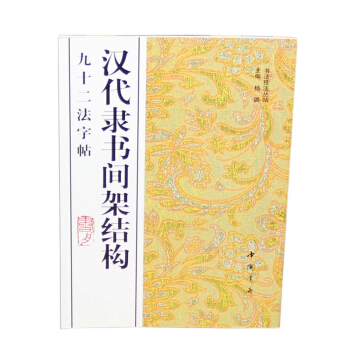 汉代隶书间架结构
九十二法字帖
书法技法丛帖
主编 杨璐
中国书店